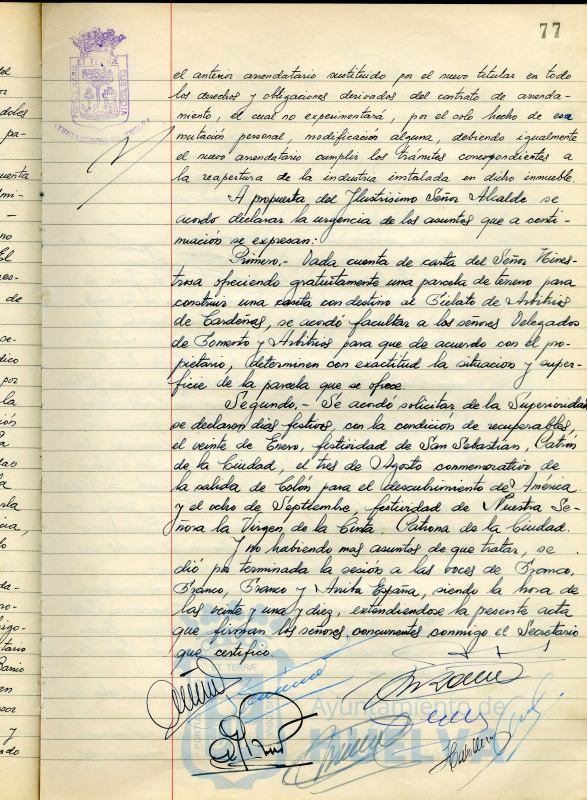 77
el anterior arrendatario sustituido por el nuevo titular en todo
los derechos y obligaciones derivados del contrato de arrenda-
miento, el cual no experimentará, por el solo hecho de esa
mutación personal, modificación alguna, debiendo igualmente
el nuevo arrendatario cumplir los trámites correspondientes a
la reapertura de la industria instalada en dicho inmueble.
A propuesta del Ilustrisimo Señor Alcalde se
acordo declarar la urgencia de los asuntos que a conti-
nuación se expresan:
Primero,- Dada cuenta de carta del Señor Hines-
trosa ofreciendo gratuitamente una parcela de terreno para
construir una caseta con destino al Fielato de Arbitrios
de Cardeñas, se acordó facultar a los señores Delegados
de Fomento y Arbitrios para que de acuerdo con el pro-
pietario, determinen con exactitud la situacion y super-
ficie de la parcela que se ofrece.
Segundo,- Se acordó solicitar de la Superioridad
se declaren dias festivos, con la condición de recuperables,
el veinte de Enero, festividad de San Sebastian, Patron
de la Ciudad, el tres de Agosto conmemorativo de
la salida de Colón para el descubrimiento de América
y el ocho de Septiembre, festividad de Nuestra Se-
ñora la Virgen de la Cinta, Patrona de la Ciudad.
Y no habiendo mas asuntos de que tratar, se
dió por terminada la sesión a las voces de Franco,
Franco, Franco y Arriba España, siendo la hora de
las veinte y una y diez, extendiendose la presente acta
que firman los señores concurrentes conmigo el Secretario
que certifico.
Ayuntamiento de
HUELVA